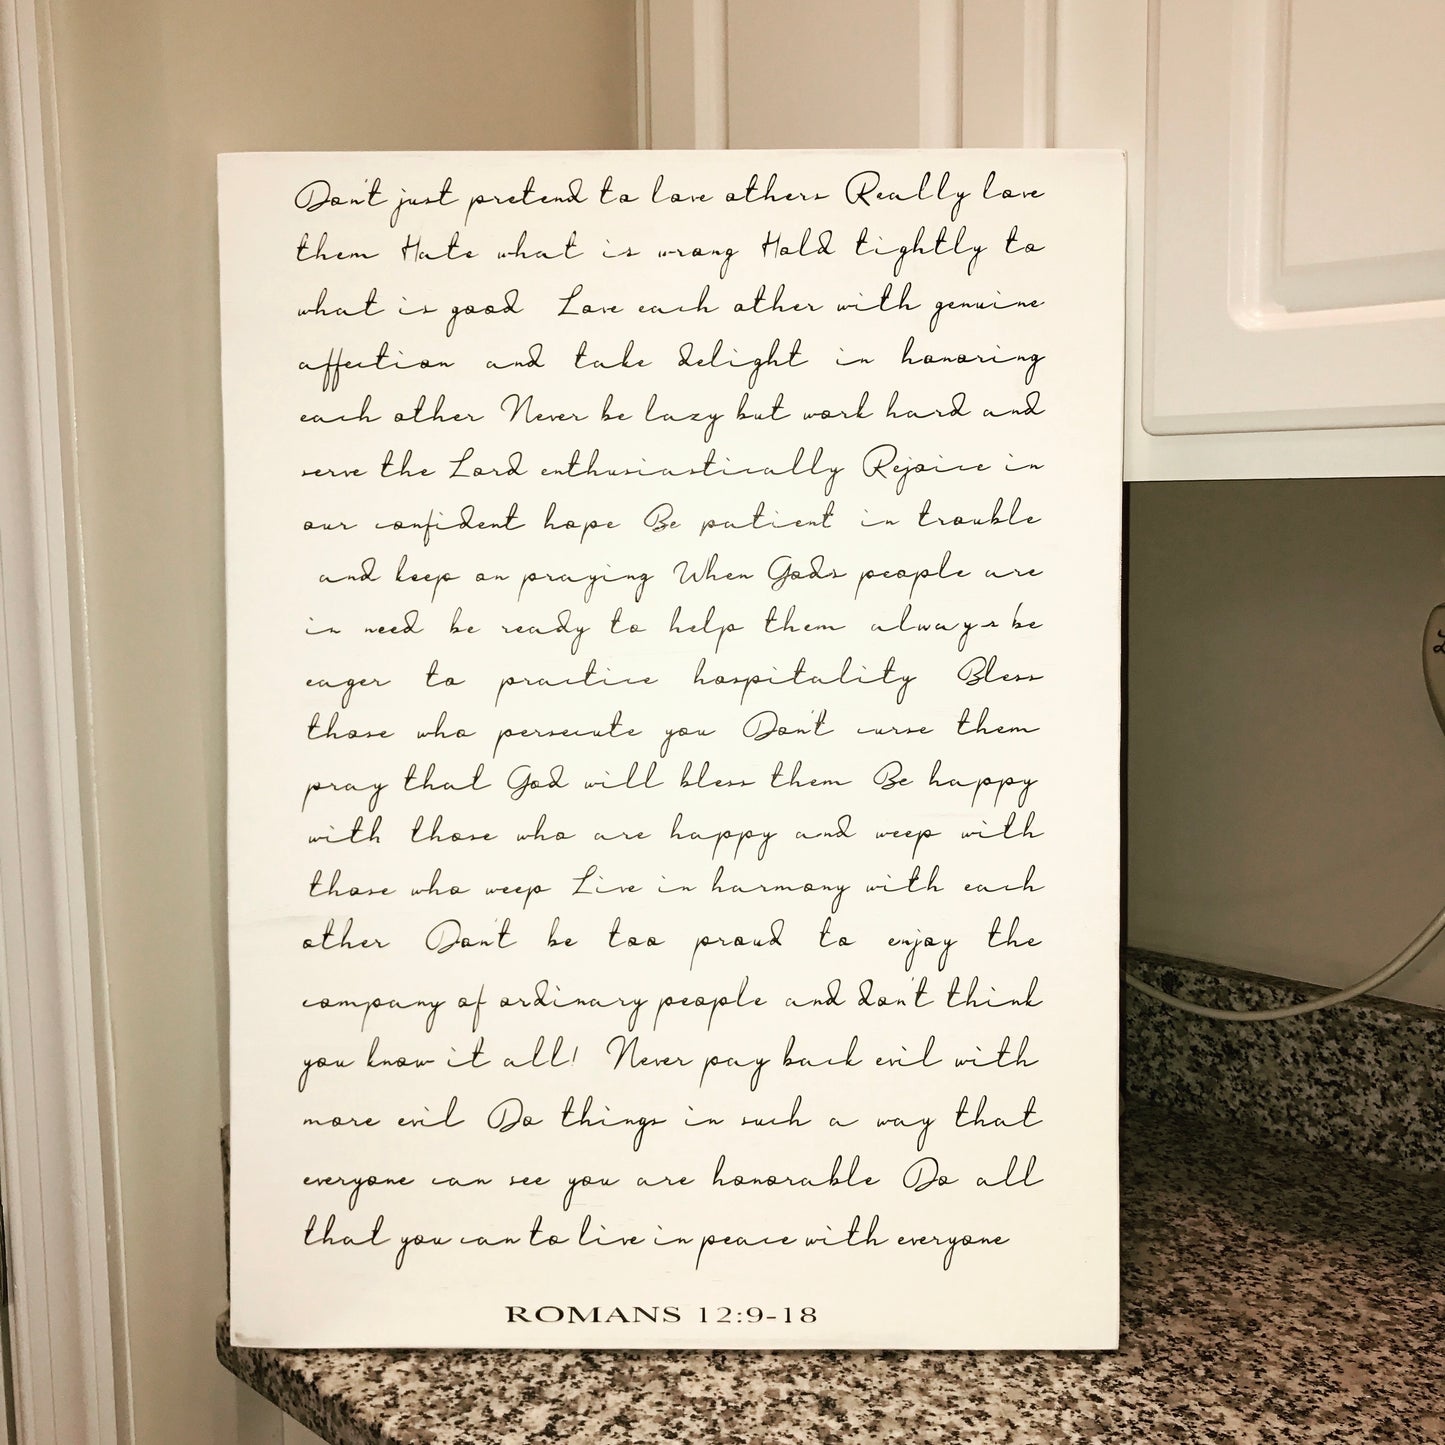 Don't just pretend to love others Really love
them Hate what is wrong Hold tightly to
what is good Love each other with genuine
affection and take delight in honoring
each other Never be lazy but work hard and
serve the Lord enthusiastically Rejoice in
our confident hope Be patient in trouble
and keep on praying When Gods people are
in need be ready to help them always be
eager to practice hospitality Bless
those who persecute you Don't curse them
pray that God will bless them Be happy
with those who are happy and weep with
those who weep Live in harmony with each
other Don't be too proud to enjoy the
company of ordinary people and don't think
you know it all! Never pay back evil with
more evil Do things in such a way that
everyone can see you are honorable Do all
that you can to live in peace with everyone
ROMANS 12:9-18